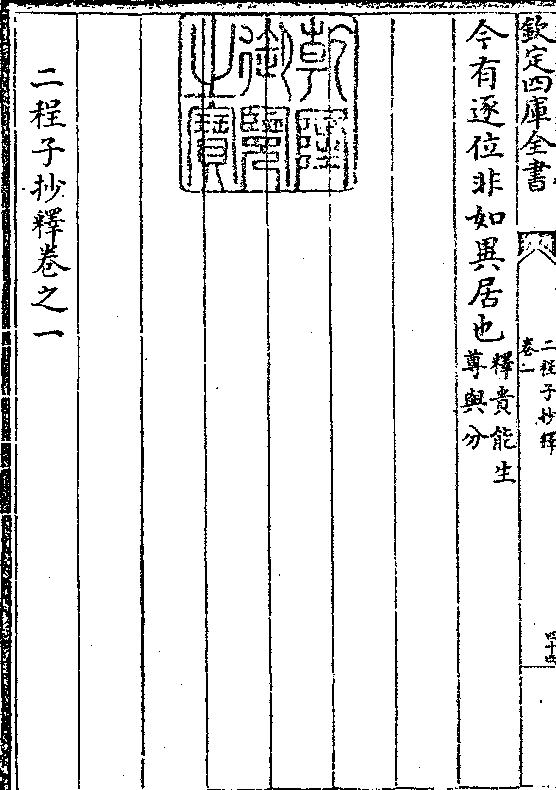 欽定四庫全書
二程子抄釋
卷一
四十四
今有逐位非如異居也
釋貴能生
尊與分
乾隆御覽之寶
二程子抄釋卷之一